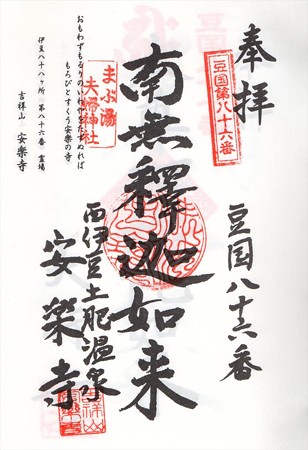 奉拝
豆国第八十六番
豆国八十六番
南無釋迦如来
まぶ湯
夫婦神社
西伊豆土肥温泉
安楽寺
おもわずもるりのいわやをたずぬれば
もろびとすくう安楽の寺
伊豆八十八ヶ所 第八十六番 霊場
吉祥山 安楽寺